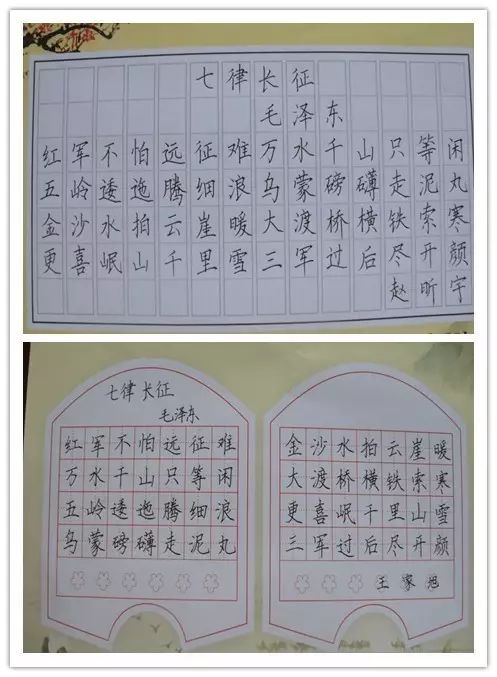 七律长征
毛泽东
红军不怕远征难万水千山只等闲
五岭逶迤腾细浪乌蒙磅礴走泥丸
金沙水拍云崖暖大渡桥横铁索寒
更喜岷山千里雪三军过后尽开颜
赵昕宇
七律 长征
毛泽东
红军不怕远征难
万水千山只等闲
五岭逶迤腾细浪
乌蒙磅礴走泥丸
金沙水拍云崖暖
大渡桥横铁索寒
更喜岷千里山雪
三军过后尽开颜
王家旭